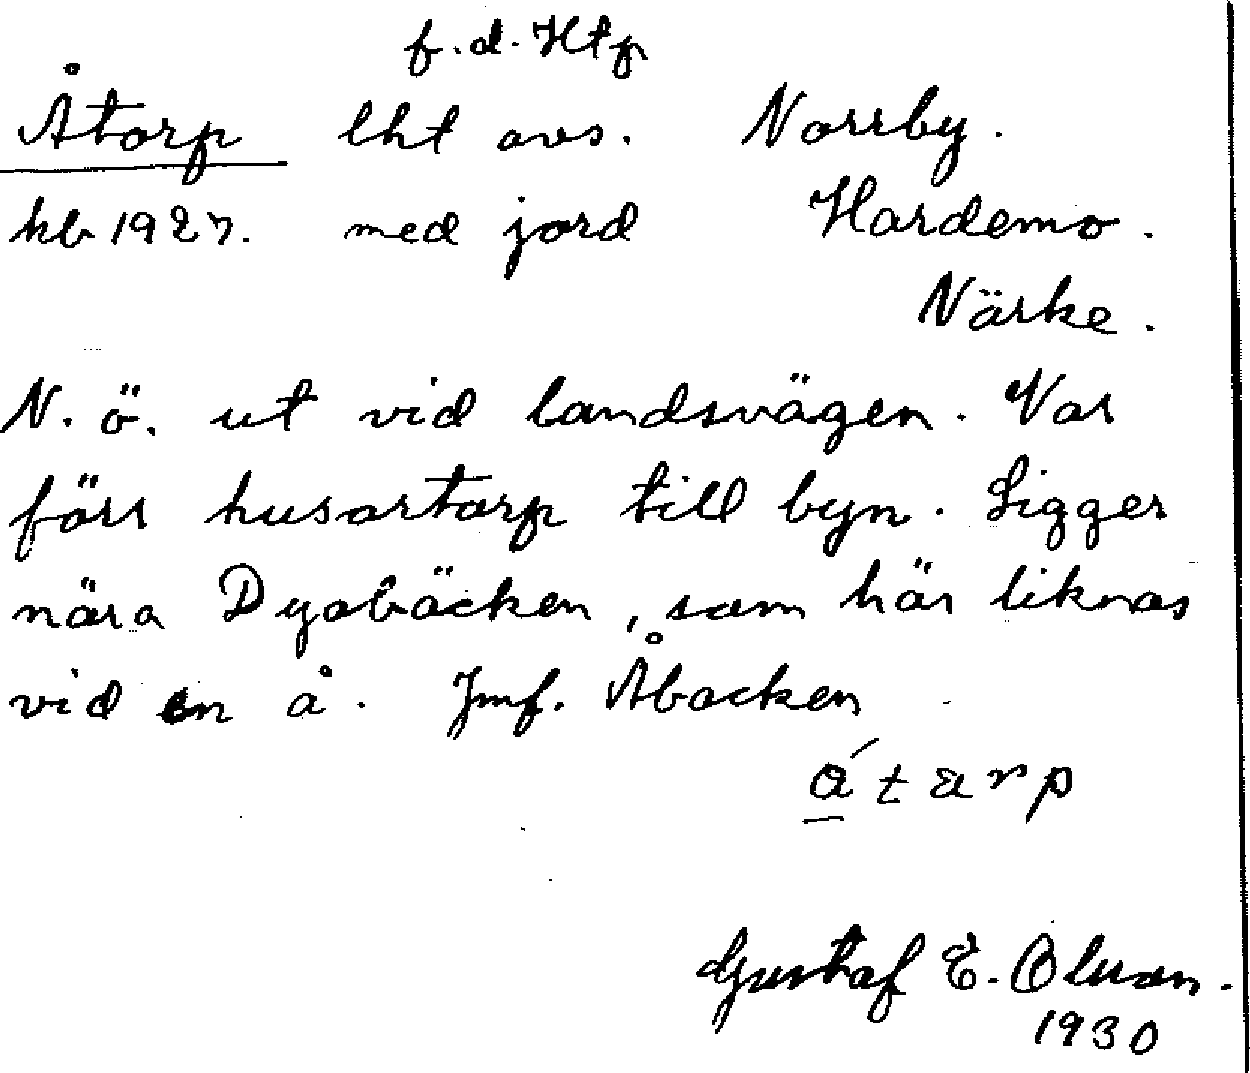 f.d. Htp
Åtorp lht avs. Norrby.
kb 1927. med jord Hardemo.
Närke.
N. ö. ut vid landsvägen. Var
förr husartorp till byn. Ligger
nära Dyabäcken, som här liknas
vid en å. Jmf. Åbacken
Gustaf E. Olsson.
1930